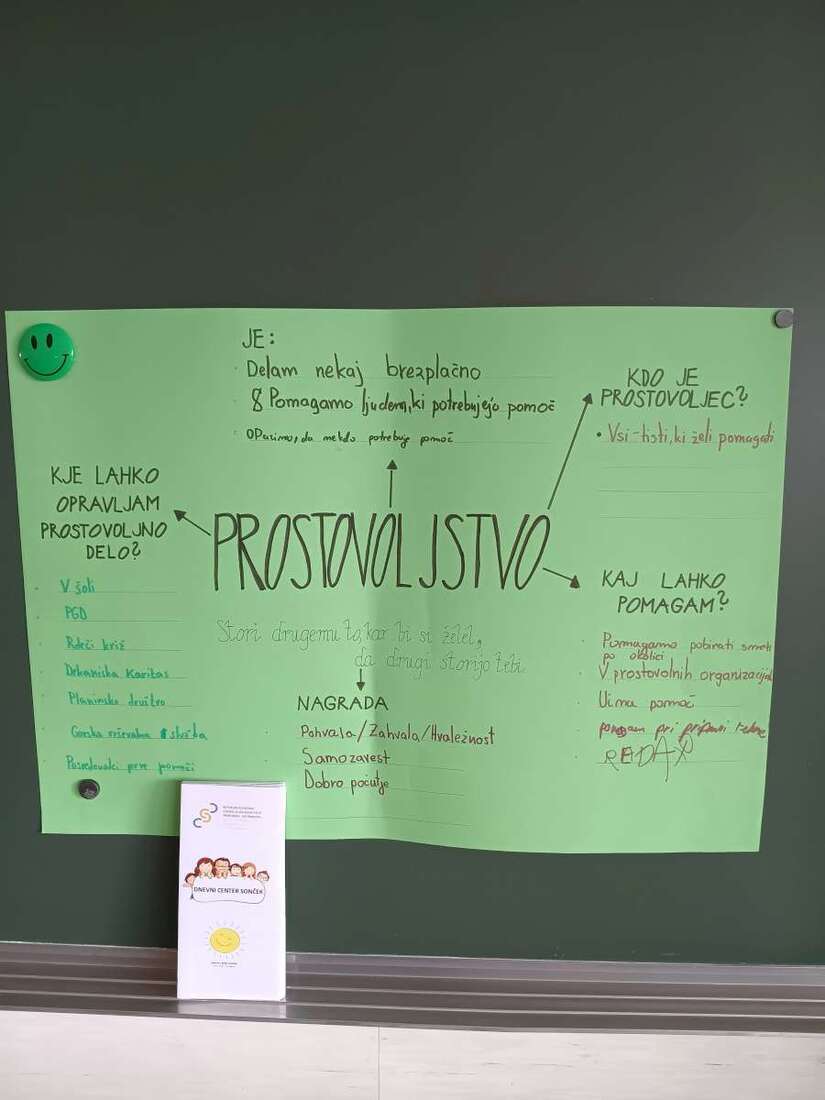 JE:
Delam nekaj brezplačno
Pomagamo ljudem, ki potrebujejo pomoč
Opazimo, da nekdo potrebuje pomoč
KDO JE
PROSTOVOLJEC?
• Vsi - tisti, ki želi pomagati
KJE LAHKO
OPRAVLJAM
PROSTOVOLJNO
DELO?
V šoli
PGD
Rdeči križ
Karitas
Planinsko društvo
Gorska reševalna služba
prve pomoči
PROSTOVOLJSTVO
Stori drugemu to, kar bi si želel,
da drugi storijo tebi.
NAGRADA
Pohvala/Zahvala/Hvaležnost
Samozavest
Dobro počutje
KAJ LAHKO
POMAGAM?
Pomagamo pobirati smeti
po okolici
V prostovolnih organizacijah
Učna pomoč
pomagam pri pripravi
DNEVNI CENTER SONČEK